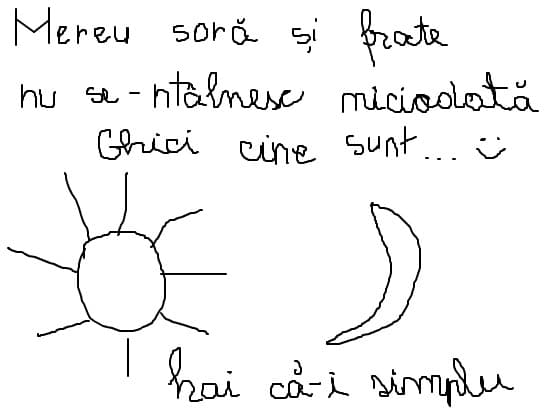 Mereu soră și frate
nu se-ntâlnesc miciodată
Ghici cine sunt... :)
hai că-i simplu